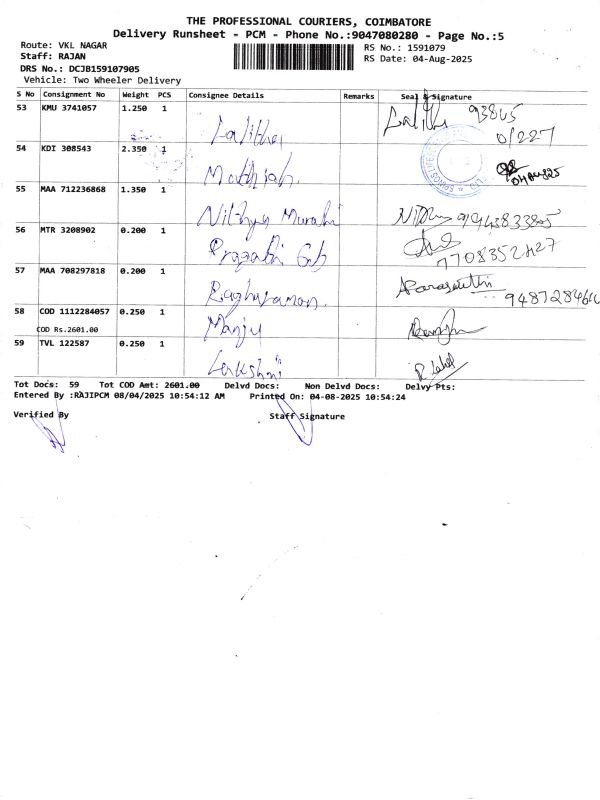 THE PROFESSIONAL COURIERS, COIMBATORE
Delivery Runsheet - PCM - Phone No.:9047080280 - Page No.:5
Route: VKL NAGAR
RS No.: 1591079
Staff: RAJAN
RS Date: 04-Aug-2025
DRS No.: DCJB159107905
Vehicle: Two Wheeler Delivery
S No Consignment No Weight PCS Consignee Details Remarks Seal & Signature
53 KMU 3741057 1.250 1 Lalitha Lalitha
54 KDI 308543 2.350 1
55 MAA 712236868 1.350 1 Nithya Murali
56 MTR 3208902 0.200 1 7708352427
57 MAA 708297818 0.200 1 Raghuraman
58 COD 1112284057 0.250 1 Manju
COD Rs.2601.00
59 TVL 122587 0.250 1 Lakshmi
Tot Docs: 59 Tot COD Amt: 2601.00 Delvd Docs: Non Delvd Docs: Delvy Pts:
Entered By :RAJIPCM 08/04/2025 10:54:12 AM Printed On: 04-08-2025 10:54:24
Verified By Staff Signature